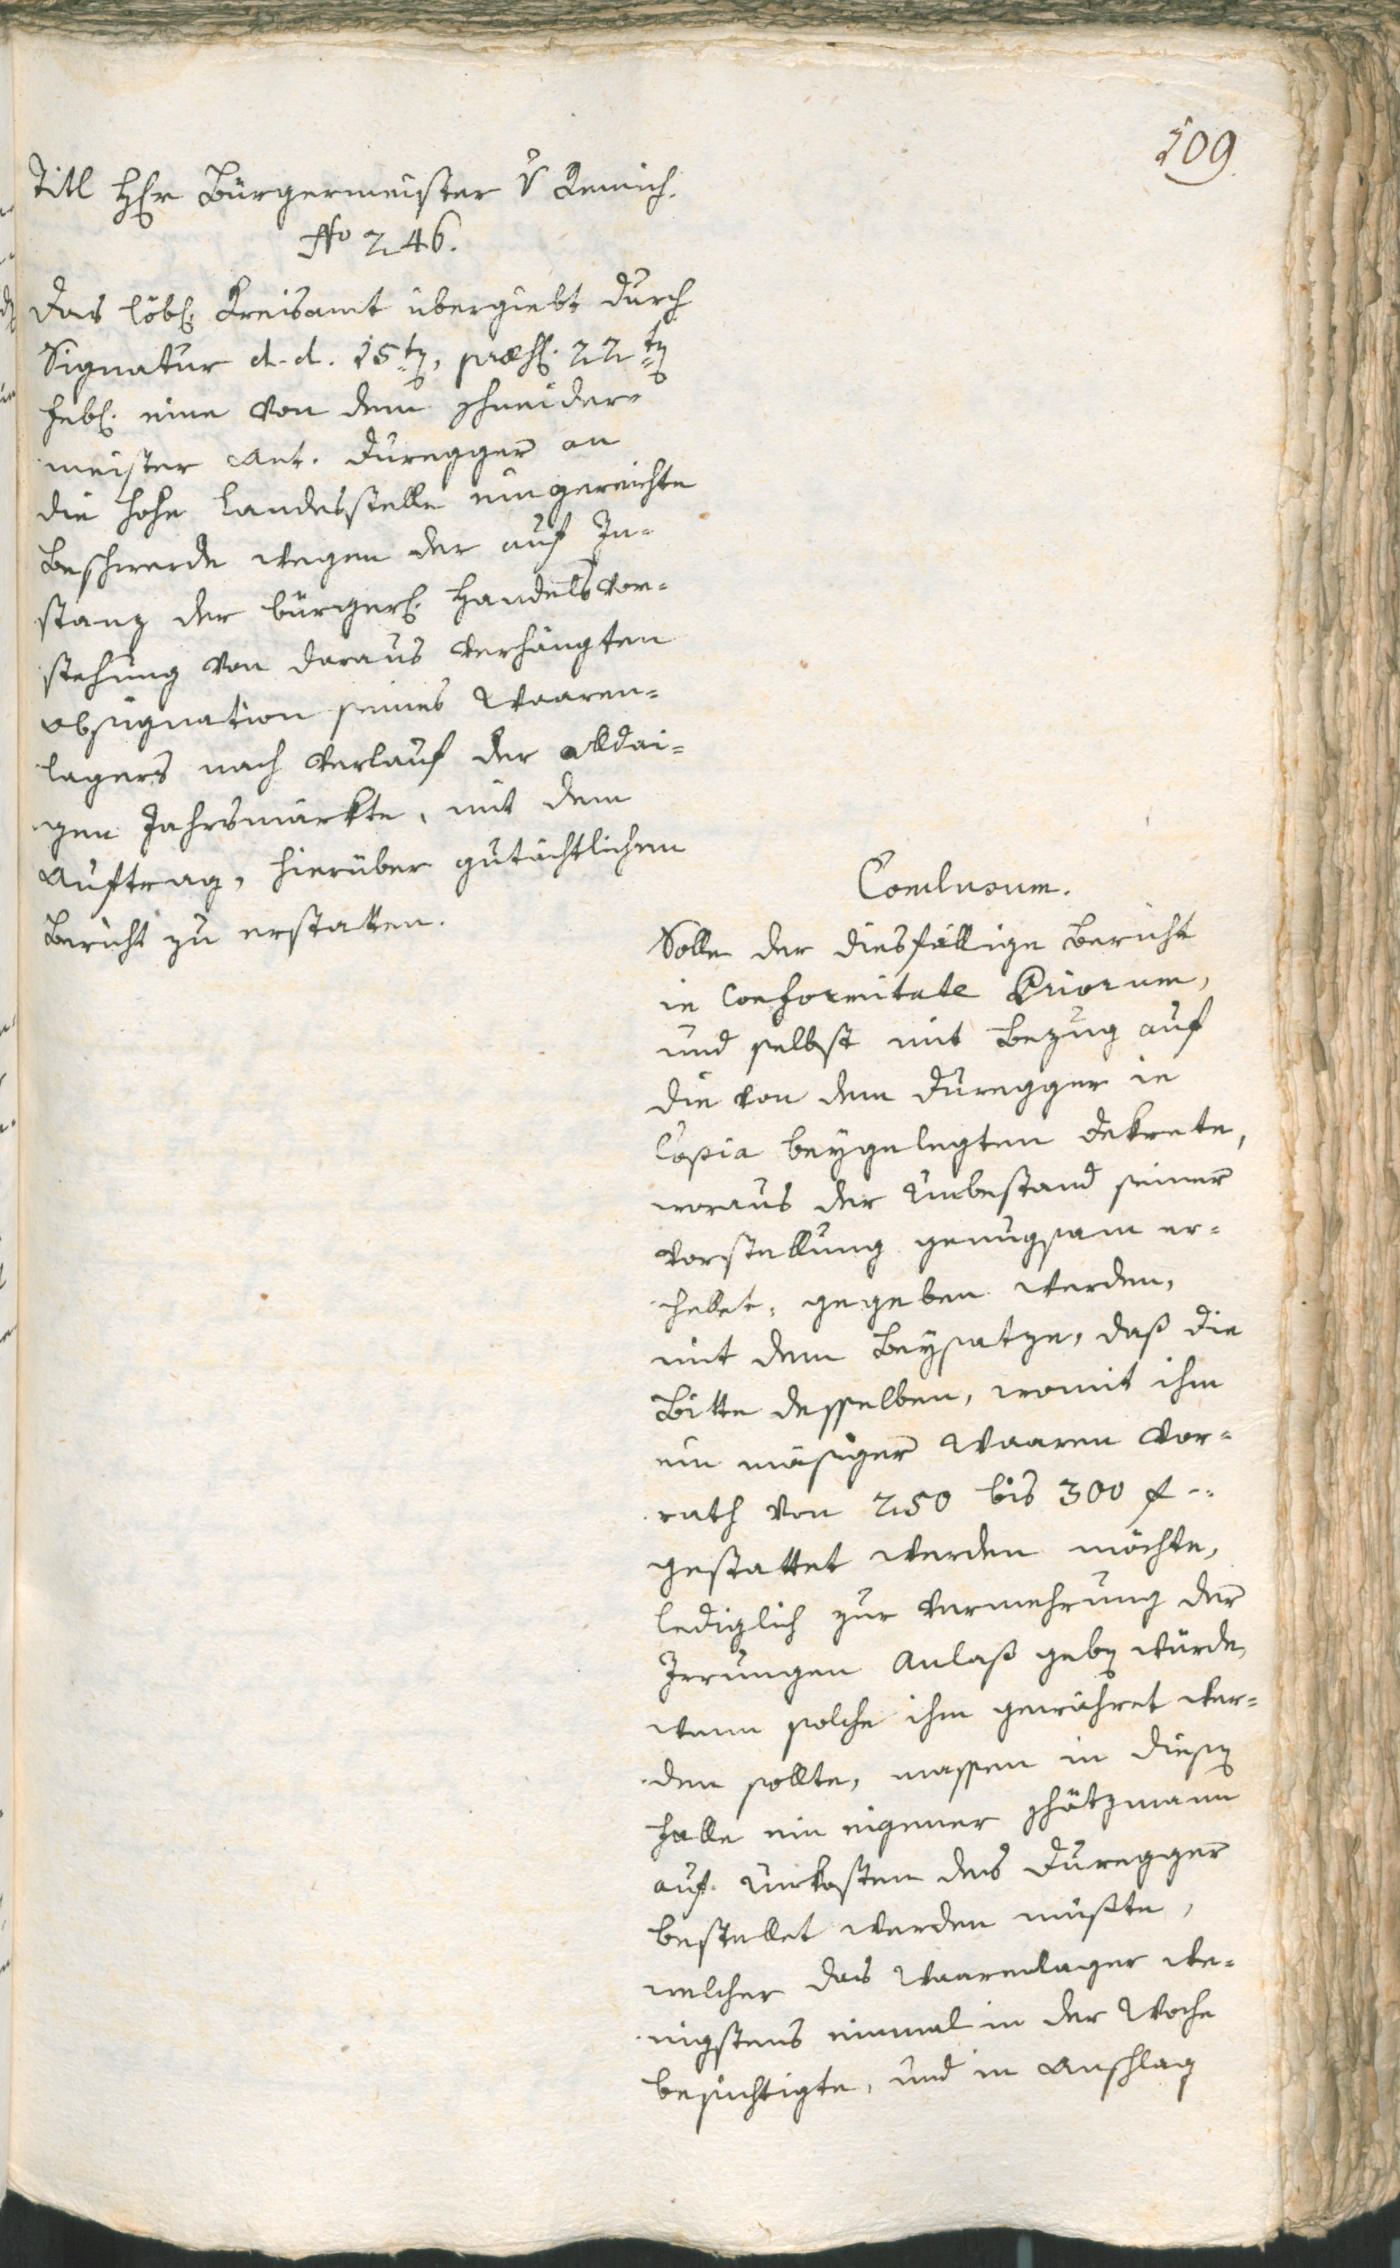 109.
Titl HEr Bürgermeister v Remich.
No 246.
Das löbl. Kreisamt übergiebt durch
Signatur d. d. 15ten, præs. 22ten
Febl. eine von dem Schneider-
meister Ant. Duregger an
die hohe Landesstelle eingereichte
Beschwerde wegen der auf In-
stanz der bürgerl. Handelsvor-
stehung von daraus verhängten
obsignation seines Waaren-
lagers nach Verlauf der alldai-
gen Jahrsmärkte, mit dem
Auftrag, hierüber gutächtlichen
Bericht zu erstatten.
Conclusum.
Solle der diesfällige Bericht
in Conformitate Priorum,
und selbst mit Bezug auf
die von dem Duregger in
Copia beygelegten Dekrete,
woraus der Unbestand seiner
Vorstellung genugsam er-
hellet, gegeben werden,
mit dem Beysatze, daß die
Bitte desselben, womit ihm
ein mäsiger Waaren Vor-
rath von 250 bis 300 f ..
gestattet werden möchte,
lediglich zur Vermehrung der
Irrungen Anlaß geben würde,
wenn solche ihm gewähret wer-
den sollte, massen in diesen
Falle ein eigener Schätzmann
auf Unkosten des Duregger
bestellet werden müßte,
welcher das Waarenlager we-
nigstens einmal in der Woche
besichtigte, und in Anschlag